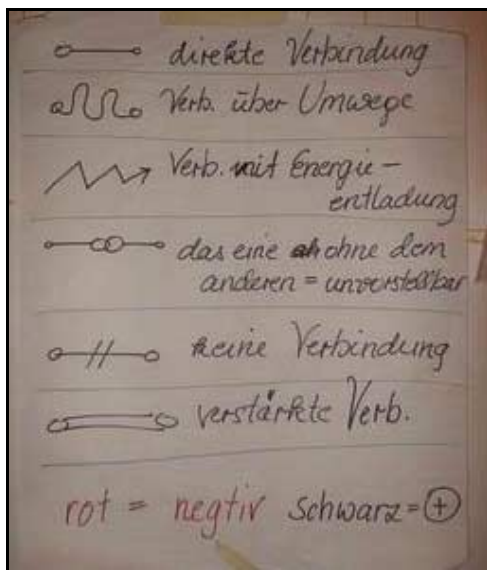 direkte Verbindung
Verb. über Umwege
Verb. mit Energie-
entladung
das eine ohne dem
anderen = unvorstellbar
keine Verbindung
verstärkte Verb.
rot = negtiv schwarz = +